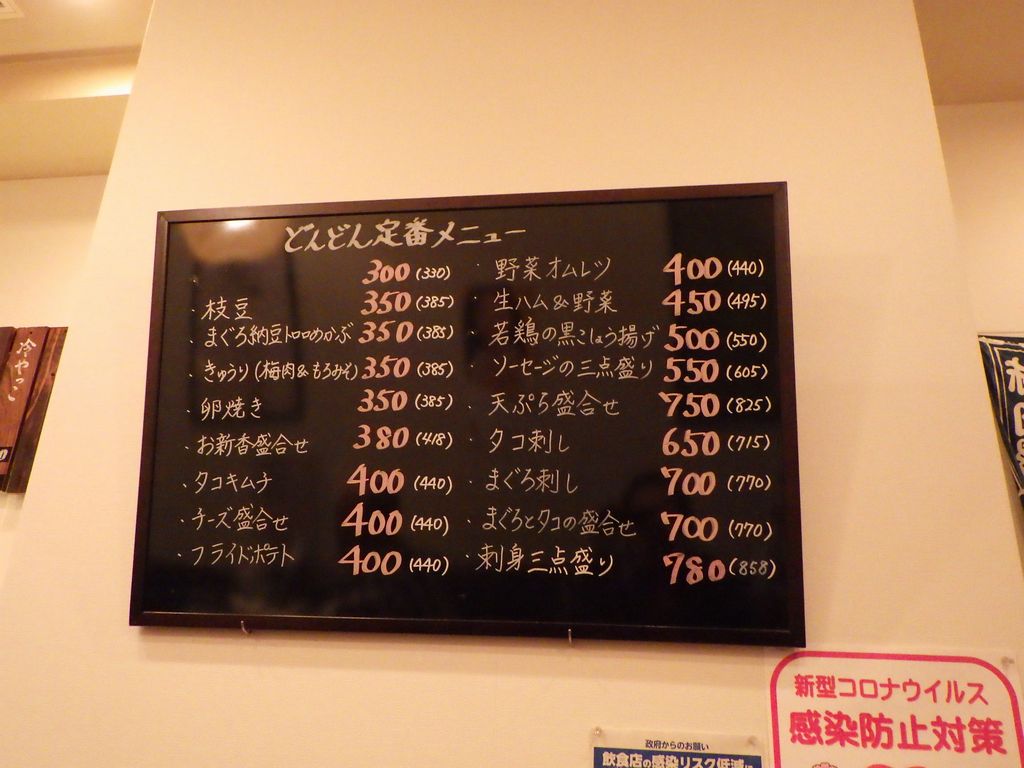 どんどん定番メニュー
300 (330)
・枝豆 350 (385)
・まぐろ納豆トロロめかぶ 350 (385)
・きゅうり (梅肉&もろみそ) 350 (385)
・卵焼き 350 (385)
・お新香盛合せ 380 (418)
・タコキムチ 400 (440)
・チーズ盛合せ 400 (440)
・フライドポテト 400 (440)
・野菜オムレツ 400 (440)
・生ハム&野菜 450 (495)
・若鶏の黒こしょう揚げ 500 (550)
・ソーセージの三点盛り 550 (605)
・天ぷら盛合せ 750 (825)
・タコ刺し 650 (715)
・まぐろ刺し 700 (770)
・まぐろとタコの盛合せ 700 (770)
・刺身三点盛り 780 (858)
冷やっこ
新型コロナウイルス
感染防止対策
政府からのお願い
飲食店の感染リスク低減に